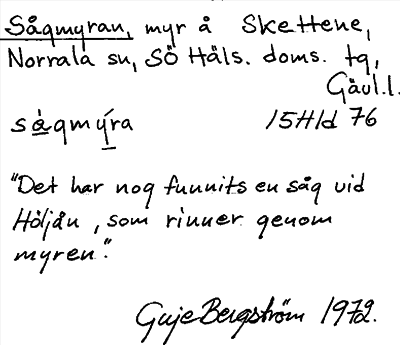 Sågmyran, myr å Skettene,
Norrala sn, SÖ Häls. doms. tg,
Gävl.l.
sågmýra 15H1d 76
"Det har nog funnits en såg vid
Höljån, som rinner genom
myren."
Guje Bergström 1972.